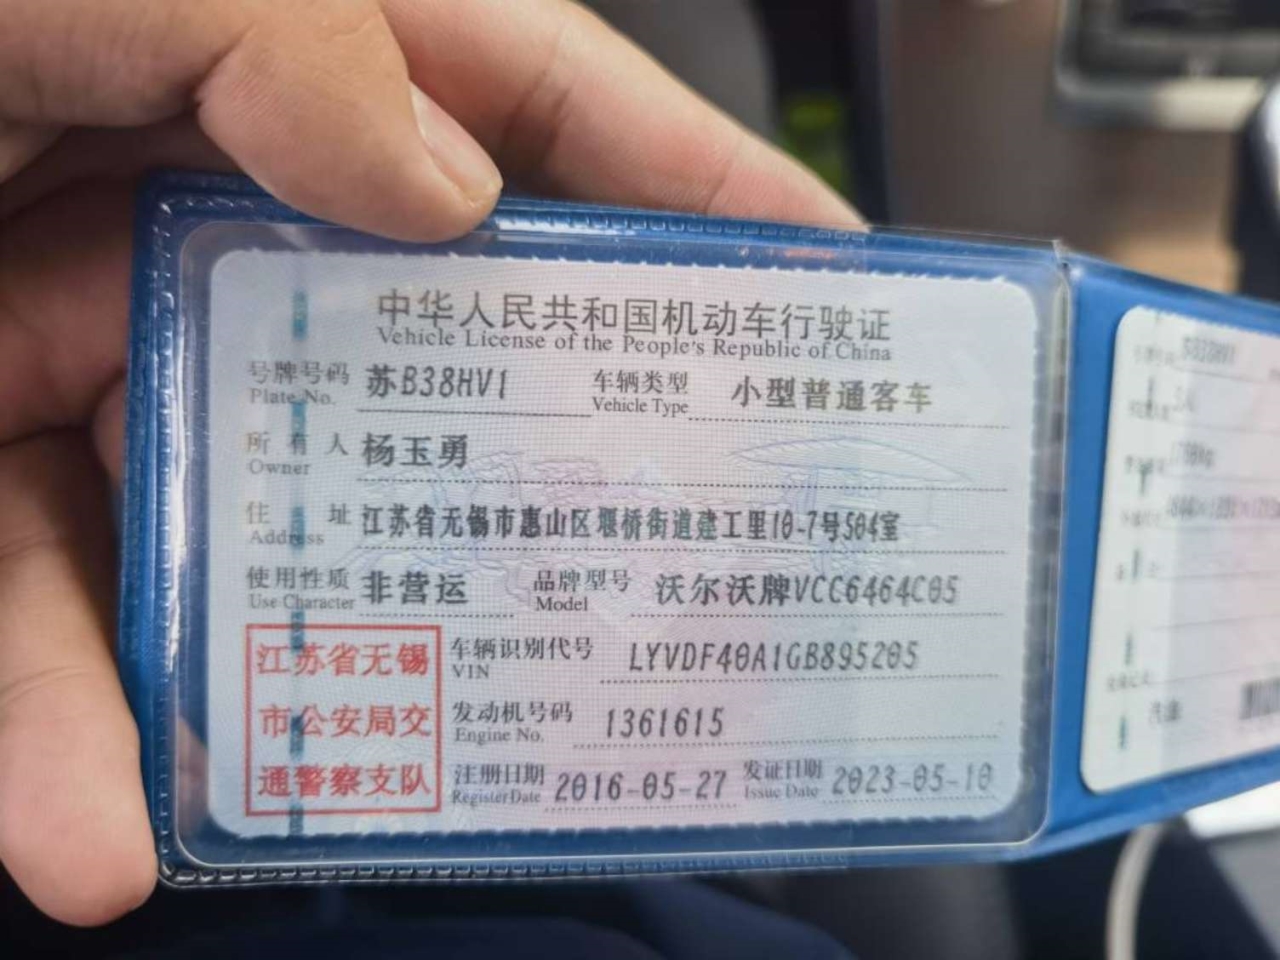 中华人民共和国机动车行驶证
Vehicle License of the People's Republic of China
号牌号码 苏B38HV1 车辆类型 小型普通客车
Plate No. Vehicle Type
所有人 杨玉勇
Owner
住址 江苏省无锡市惠山区堰桥街道建工里10-7号504室
Address
使用性质 非营运 品牌型号 沃尔沃牌VCC6464C05
Use Character Model
江苏省无锡
市公安局交
通警察支队
车辆识别代号 LYVDF40A1GB895205
VIN
发动机号码 1361615
Engine No.
注册日期 2016-05-27 发证日期 2023-05-10
Register Date Issue Date